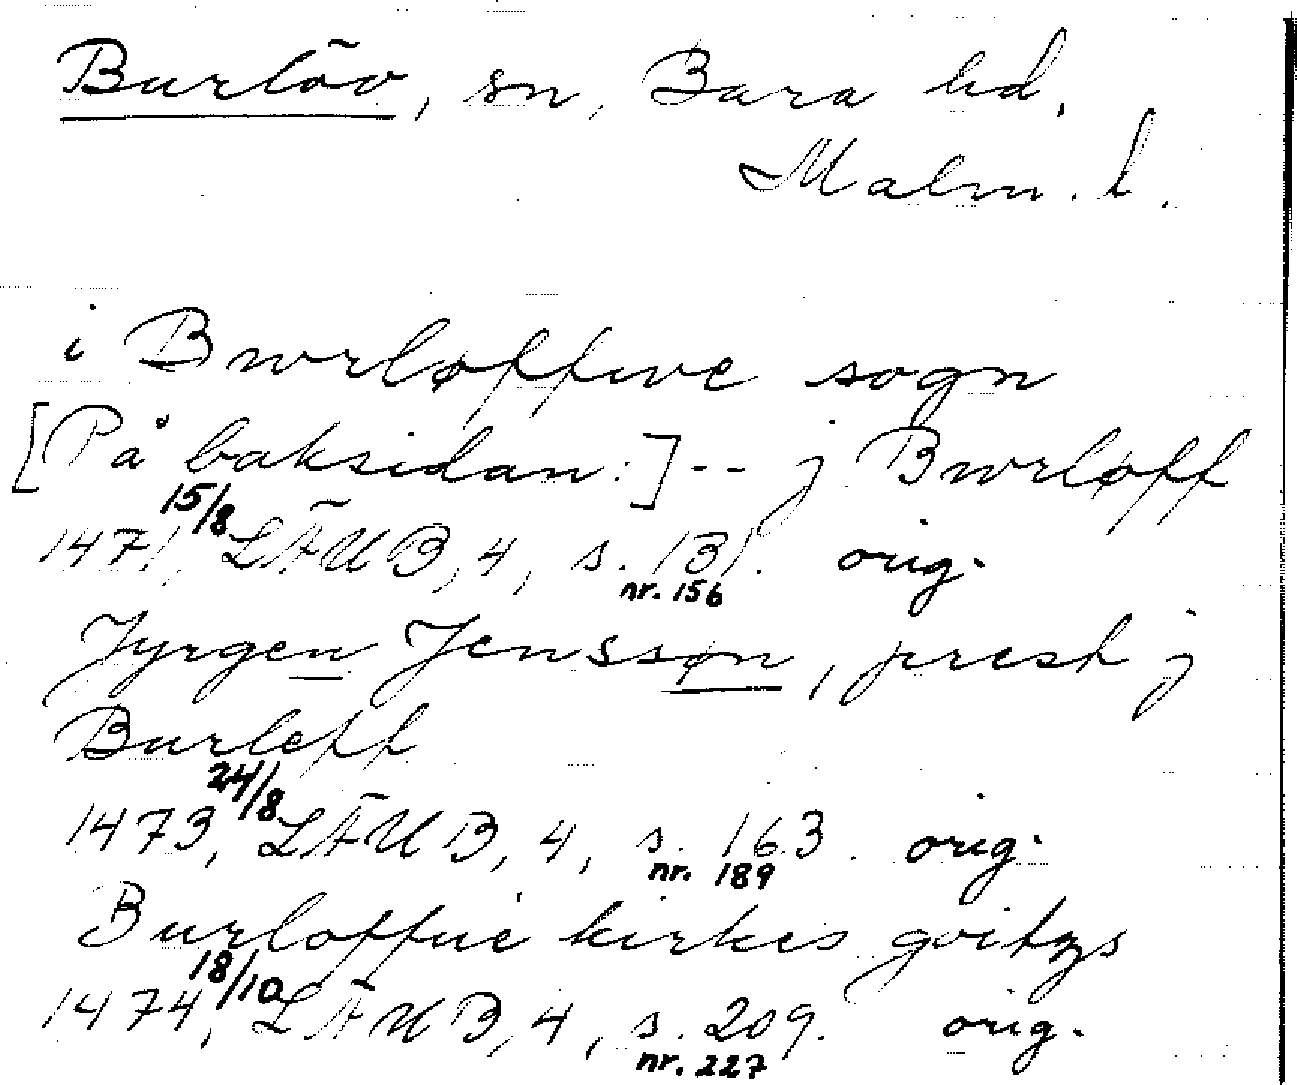 Burlöv, sn, Bara hd.
Malm. l.
i Bwrløffwe sogn
[På baksidan:] -- j Bwrløff
15/8
1471, LÄUB, 4, s. 131. orig.
nr. 156
Jyrgen Jenssøn, prest j
Burleff
24/8
1473, LÄUB, 4, s. 163. orig.
nr. 189
Burloffue kirkes goitzs
18/10
1474, LÄUB, 4, s. 209. orig.
nr. 227